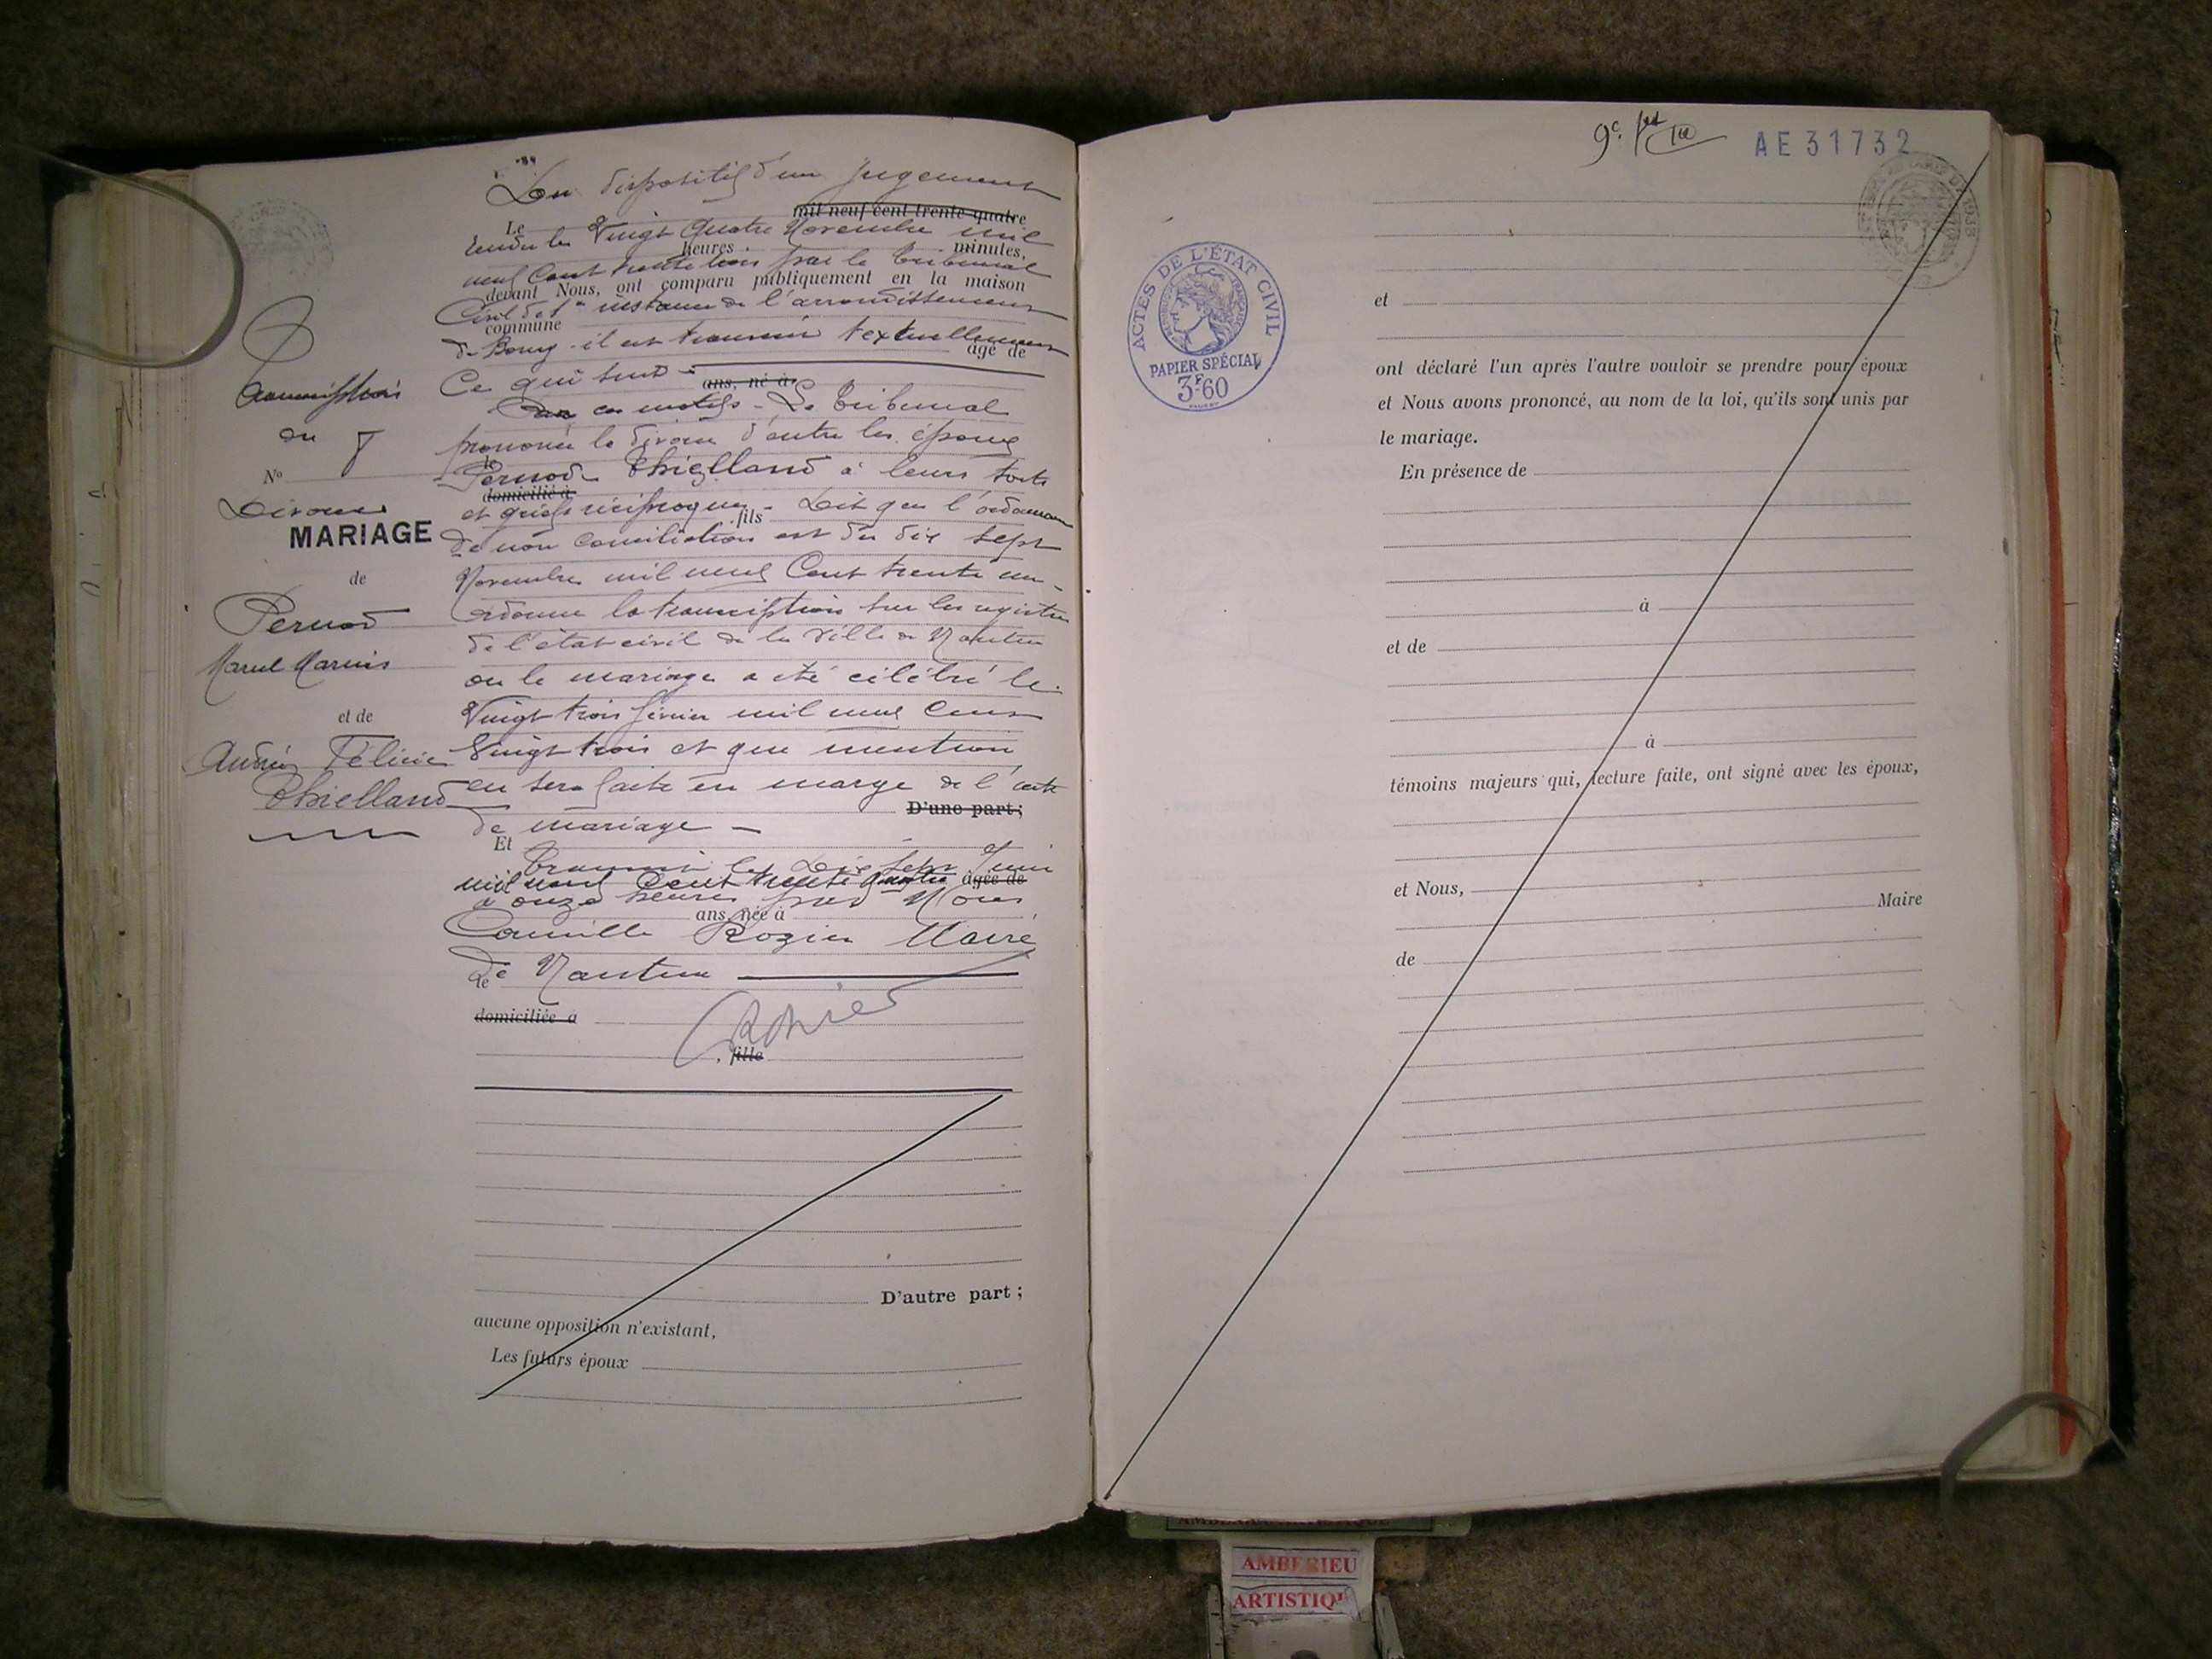 Du dispositif d'un Jugement
mil neuf cent trente-quatre
Le
rendu le Vingt Quatre Novembre mil
heures minutes,
neuf Cent trente trois par le Tribunal
devant Nous, ont comparu publiquement en la maison
Civil de 1re instance de l'arrondissement
commune
de Bourg il est transcrit textuellement
âgé de
Ce qui suit :
ans, né à
Par ces motifs - Le Tribunal
prononce le divorce d'entre les époux
le
Pernod Thielland à leurs torts
domicilié à
et griefs réciproques - Dit que l'ordonnance
fils
de non conciliation est du dix sept
Novembre mil neuf Cent trente un -
ordonne la transcription sur les registres
de l'état civil de la Ville de Nantua
ou le mariage a été célébré le
Vingt trois février mil neuf Cent
Vingt trois et que mention
en sera faite en marge de l'acte
D'une part ;
de mariage -
Et
Transcrit le Dix Sept Juin
mil neuf Cent trente Quatre âgée de
à onze heures par Nous
ans, née à
Camille Rozier Maire
De Nantua
le
domiciliée à
, fille
D'autre part ;
aucune opposition n'existant,
Les futurs époux
Transcription
du
N°
Divorce
MARIAGE
de
Pernod
Marcel Marius
et de
Félicie
Thielland
9e
AE 31732
ACTES DE L'ÉTAT CIVIL
PAPIER SPÉCIAL
3F60
et
ont déclaré l'un après l'autre vouloir se prendre pour époux
et Nous avons prononcé, au nom de la loi, qu'ils sont unis par
le mariage.
En présence de
à
et de
à
témoins majeurs qui, lecture faite, ont signé avec les époux,
et Nous,
Maire
de
AMBERIEU
ARTISTIQU